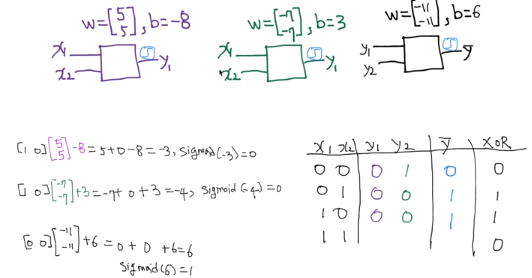 w = [5 5], b = -8
w = [-7 -7], b = 3
w = [-11 -11], b = 6
x₁ x₂ S y₁
x₁ x₂ S y₁
y₁ y₂ S ȳ
[1 0][5 5] -8 = 5+0-8 = -3, sigmoid(-3) = 0
[1 0][-7 -7] +3 = -7+0+3 = -4, sigmoid(-4) = 0
[0 0][-11 -11] +6 = 0+0+6 = 6
sigmoid(6) = 1
x₁ x₂ y₁ y₂ ȳ XOR
0 0 0 1 0 0
0 1 0 0 1 1
1 0 0 0 1 1
1 1 0